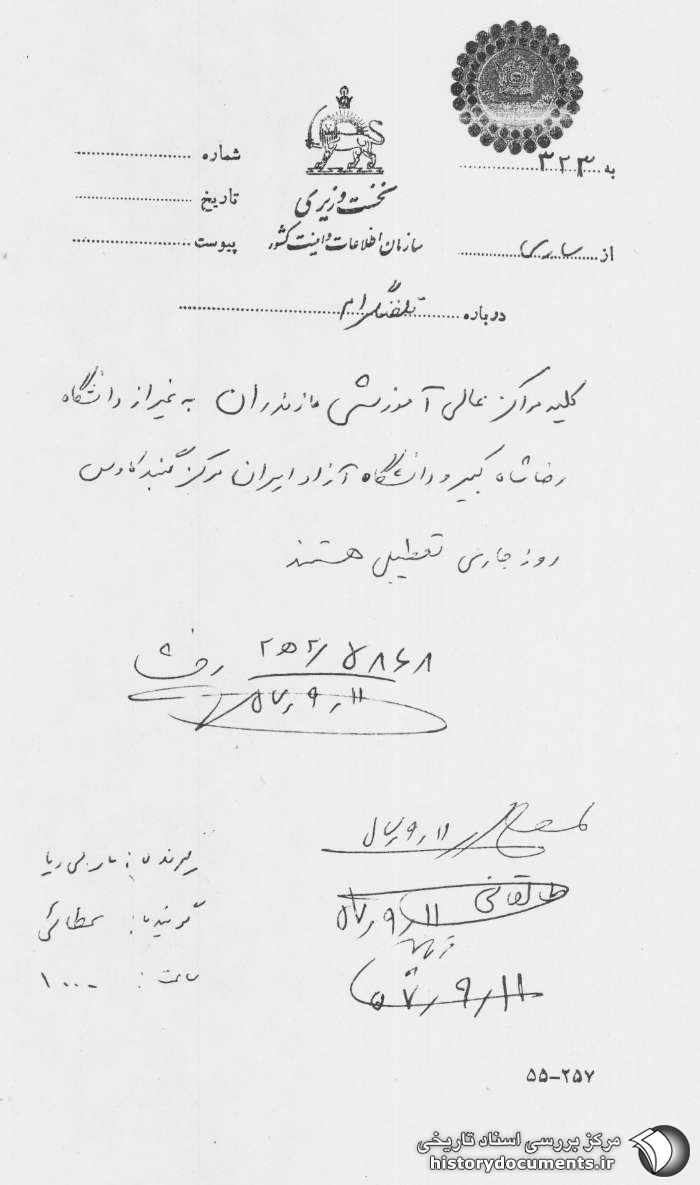 به ۳۲۳
شماره
نخست وزیری
تاریخ
سازمان اطلاعات و امنیت کشور
از ساری
پیوست
درباره تلفنگرام
کلیه مراکز عالی آموزشی مازندران به غیر از دانشگاه
رضا شاه کبیر و دانشگاه آزاد ایران مرکز گنبد کاوس
روز جاری تعطیل هستند
۵۸۶۸ / ۲ ه ۲
۵۷٫۹٫۱۱
۵۷٫۹٫۱۱
طالقانی
۵۷٫۹٫۱۱
۵۷٫۹٫۱۱
گیرنده:
گوینده: عطائی
ساعت: ۱۰۰۰
۵۵-۲۵۷
مرکز بررسی اسناد تاریخی
historydocuments.ir